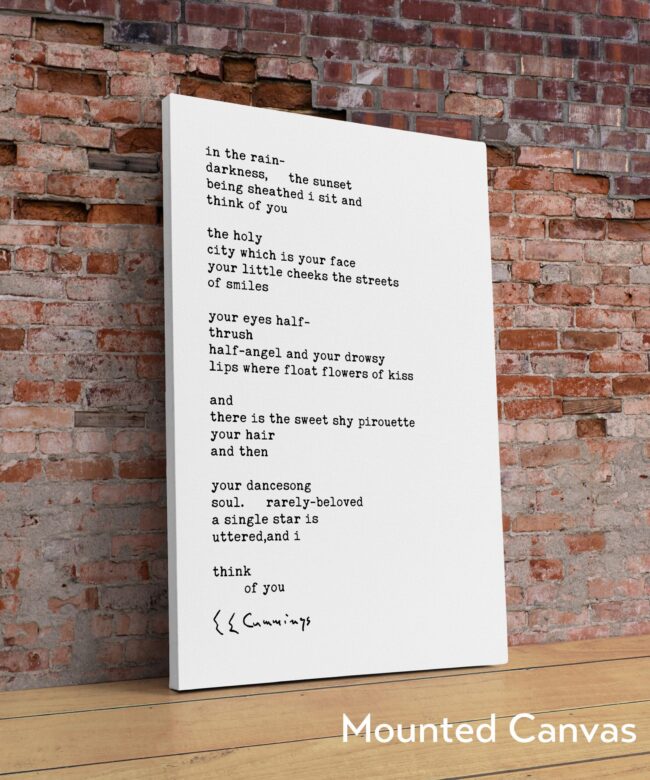 in the rain-
darkness,   the sunset
being sheathed i sit and
think of you
the holy
city which is your face
your little cheeks the streets
of smiles
your eyes half-
thrush
half-angel and your drowsy
lips where float flowers of kiss
and
there is the sweet shy pirouette
your hair
and then
your dancesong
soul.   rarely-beloved
a single star is
uttered,and i
think
of you
EE Cummings
Mounted Canvas